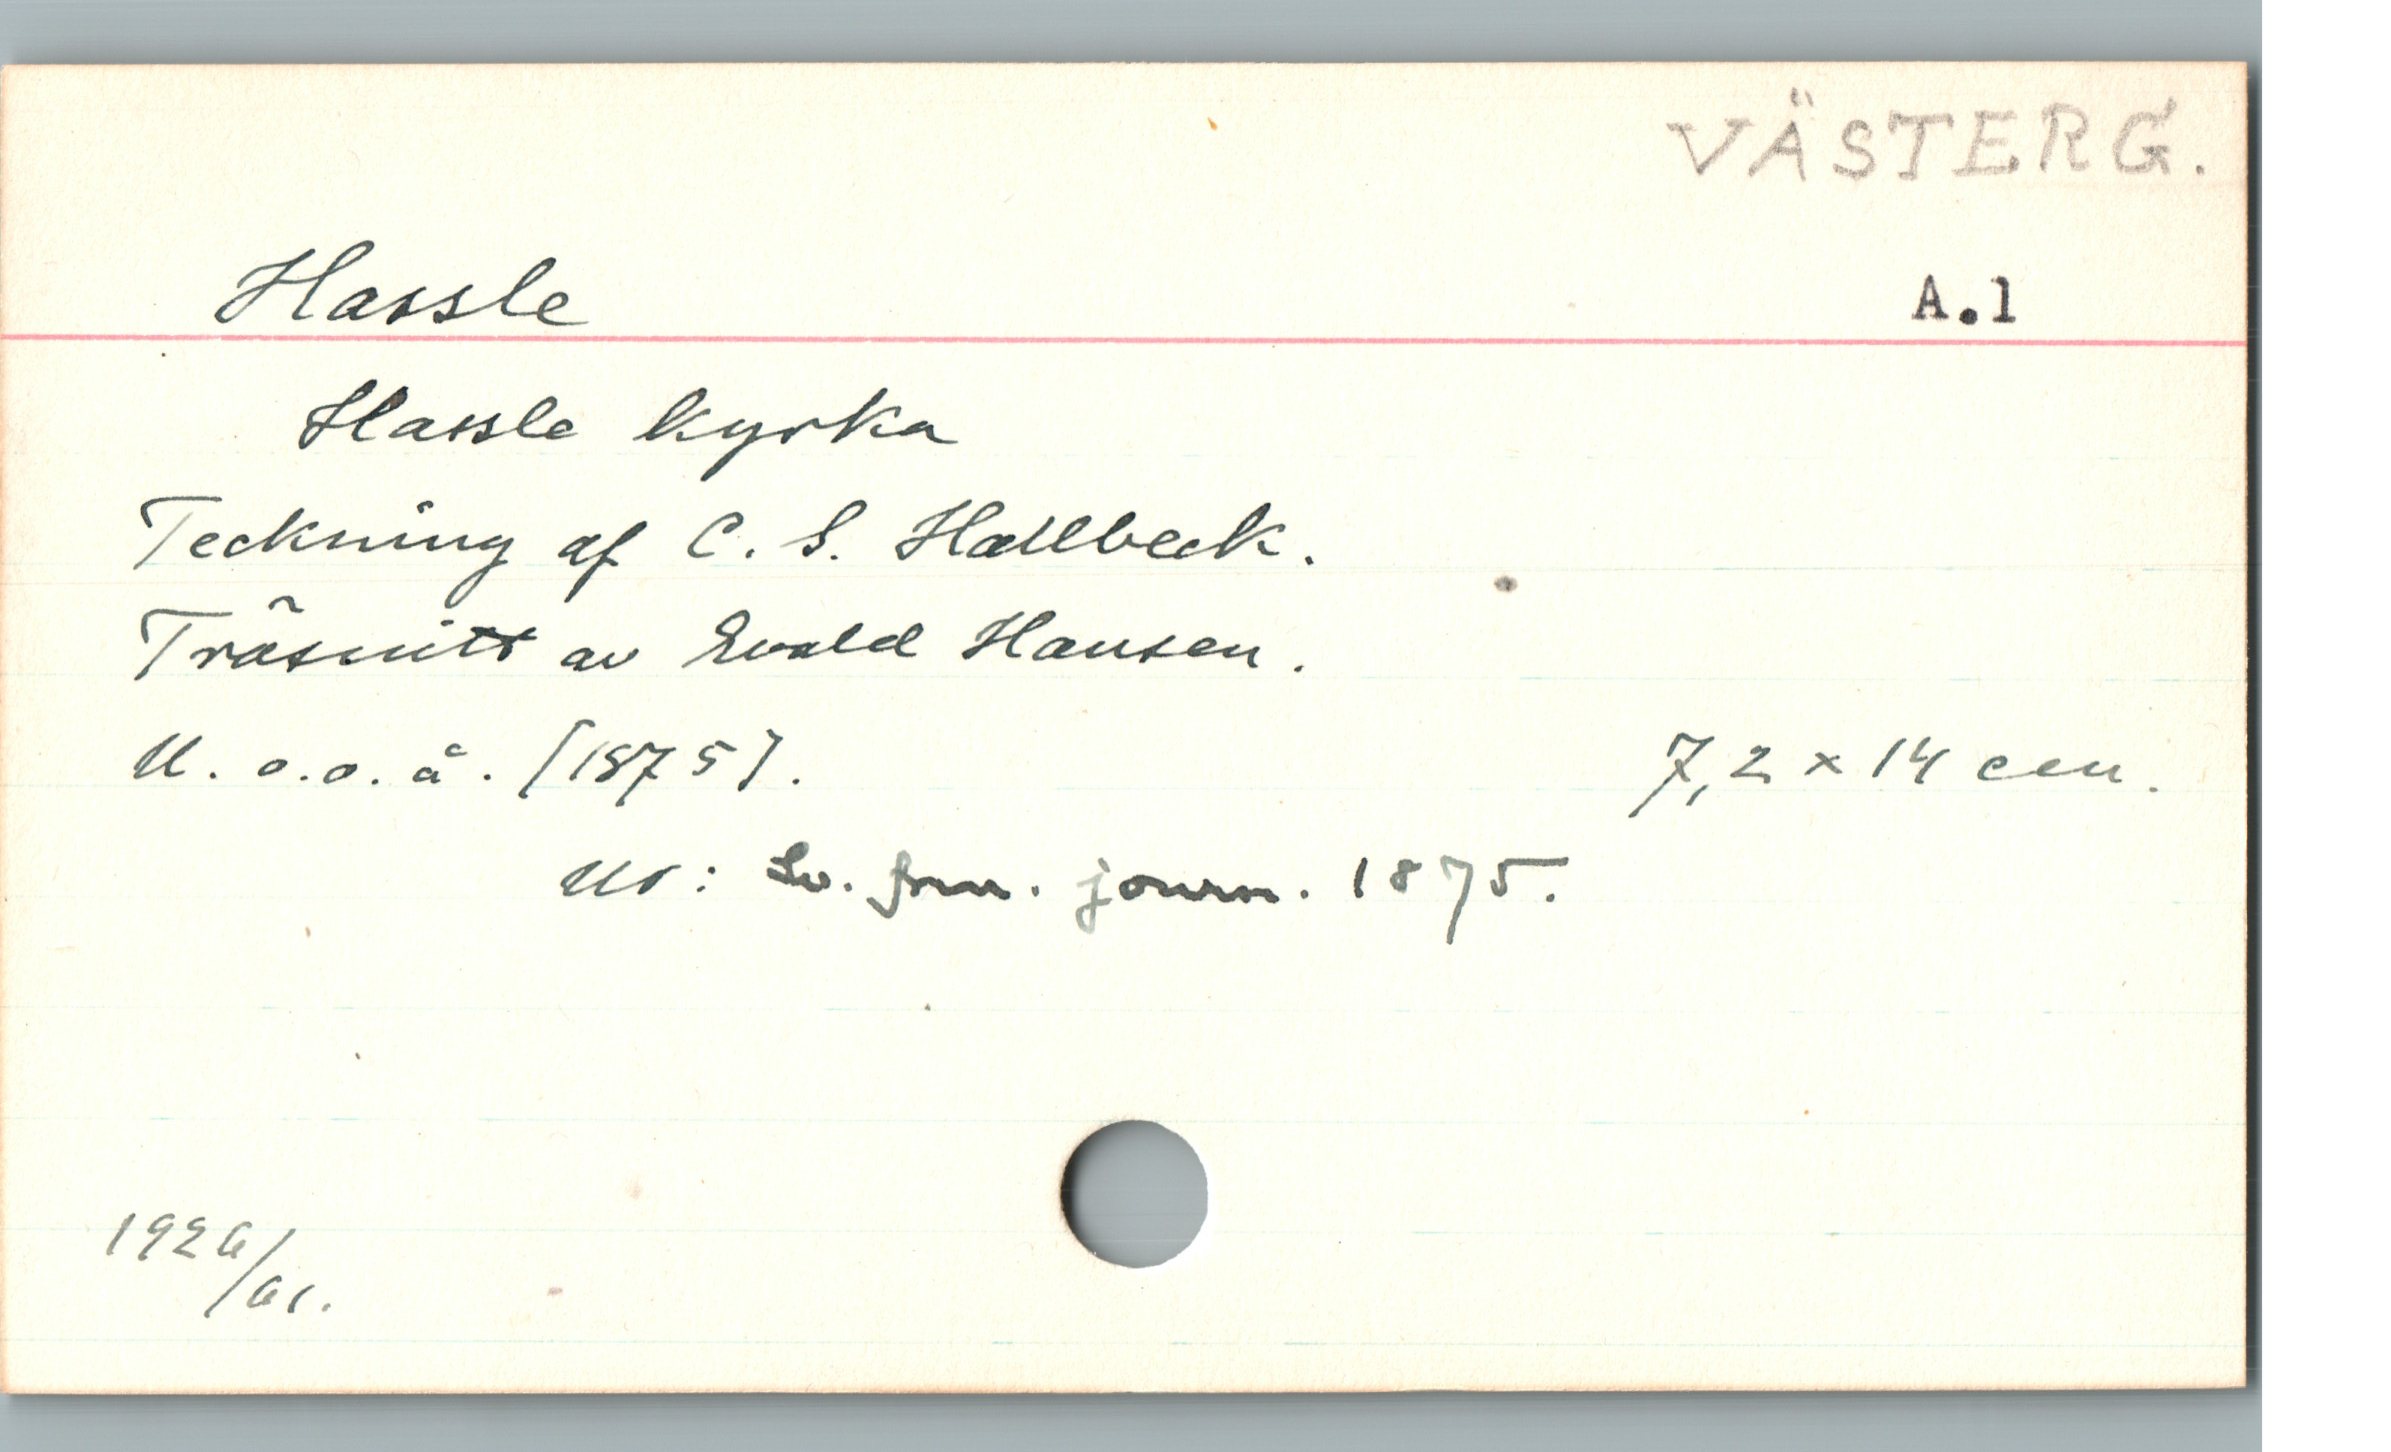 VÄSTERG.
Hassle A.1
Hassle kyrka
Teckning af C. S. Hallbeck.
Träsnitt av Evald Hansen.
U. o. o. å. [1875]. 7,2 x 14 cm.
Ur: Sv. forn. journ. 1875.
1926/61.